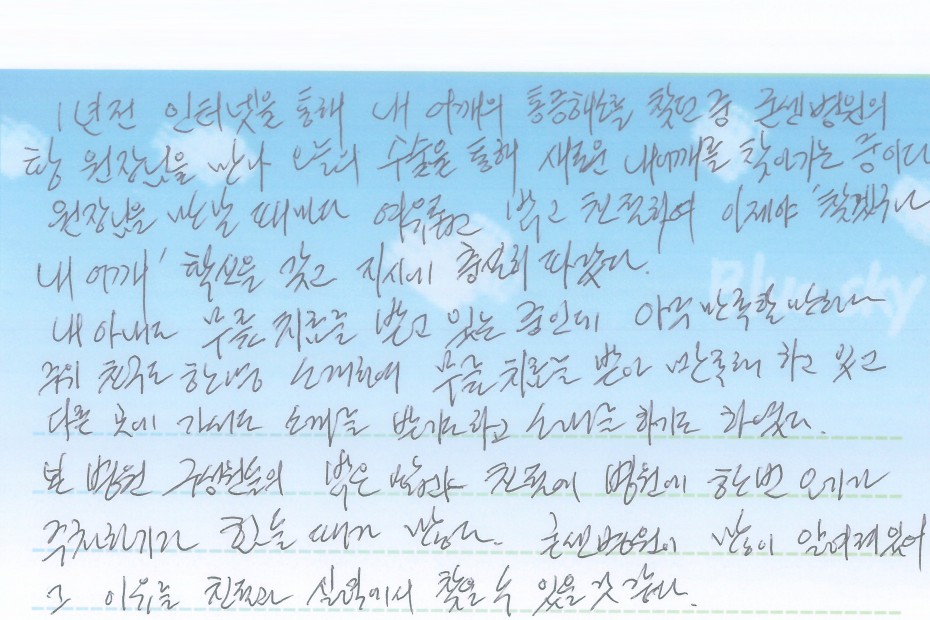 1년전 인터넷을 통해 내 어깨의 통증해소를 찾던 중 굳센병원의
황 원장님을 만나 오늘의 수술을 통해 새로운 내어깨를 찾아가는 중이다
원장님을 만날 때마다 여유롭고 밝고 친절하여 이제야 '찾겠구나
내 어깨' 확신을 갖고 지시에 충실히 따랐다.
Blue sky
내 아내도 무릎 치료를 받고 있는 중인데 아주 만족할 만하다
주위 친구도 한명 소개하여 무릎 치료를 받아 만족해 하고 있고
다른 곳에 가서도 소개를 받기도하고 소개를 하기도 하였다.
본 병원 구성원들의 밝은 친절에 병원에 한번 오기가
주차하기가 힘들 때가 많다. 굳센병원이 많이 알려져있어
그 이유를 친절과 실력에서 찾을 수 있을 것 같다.